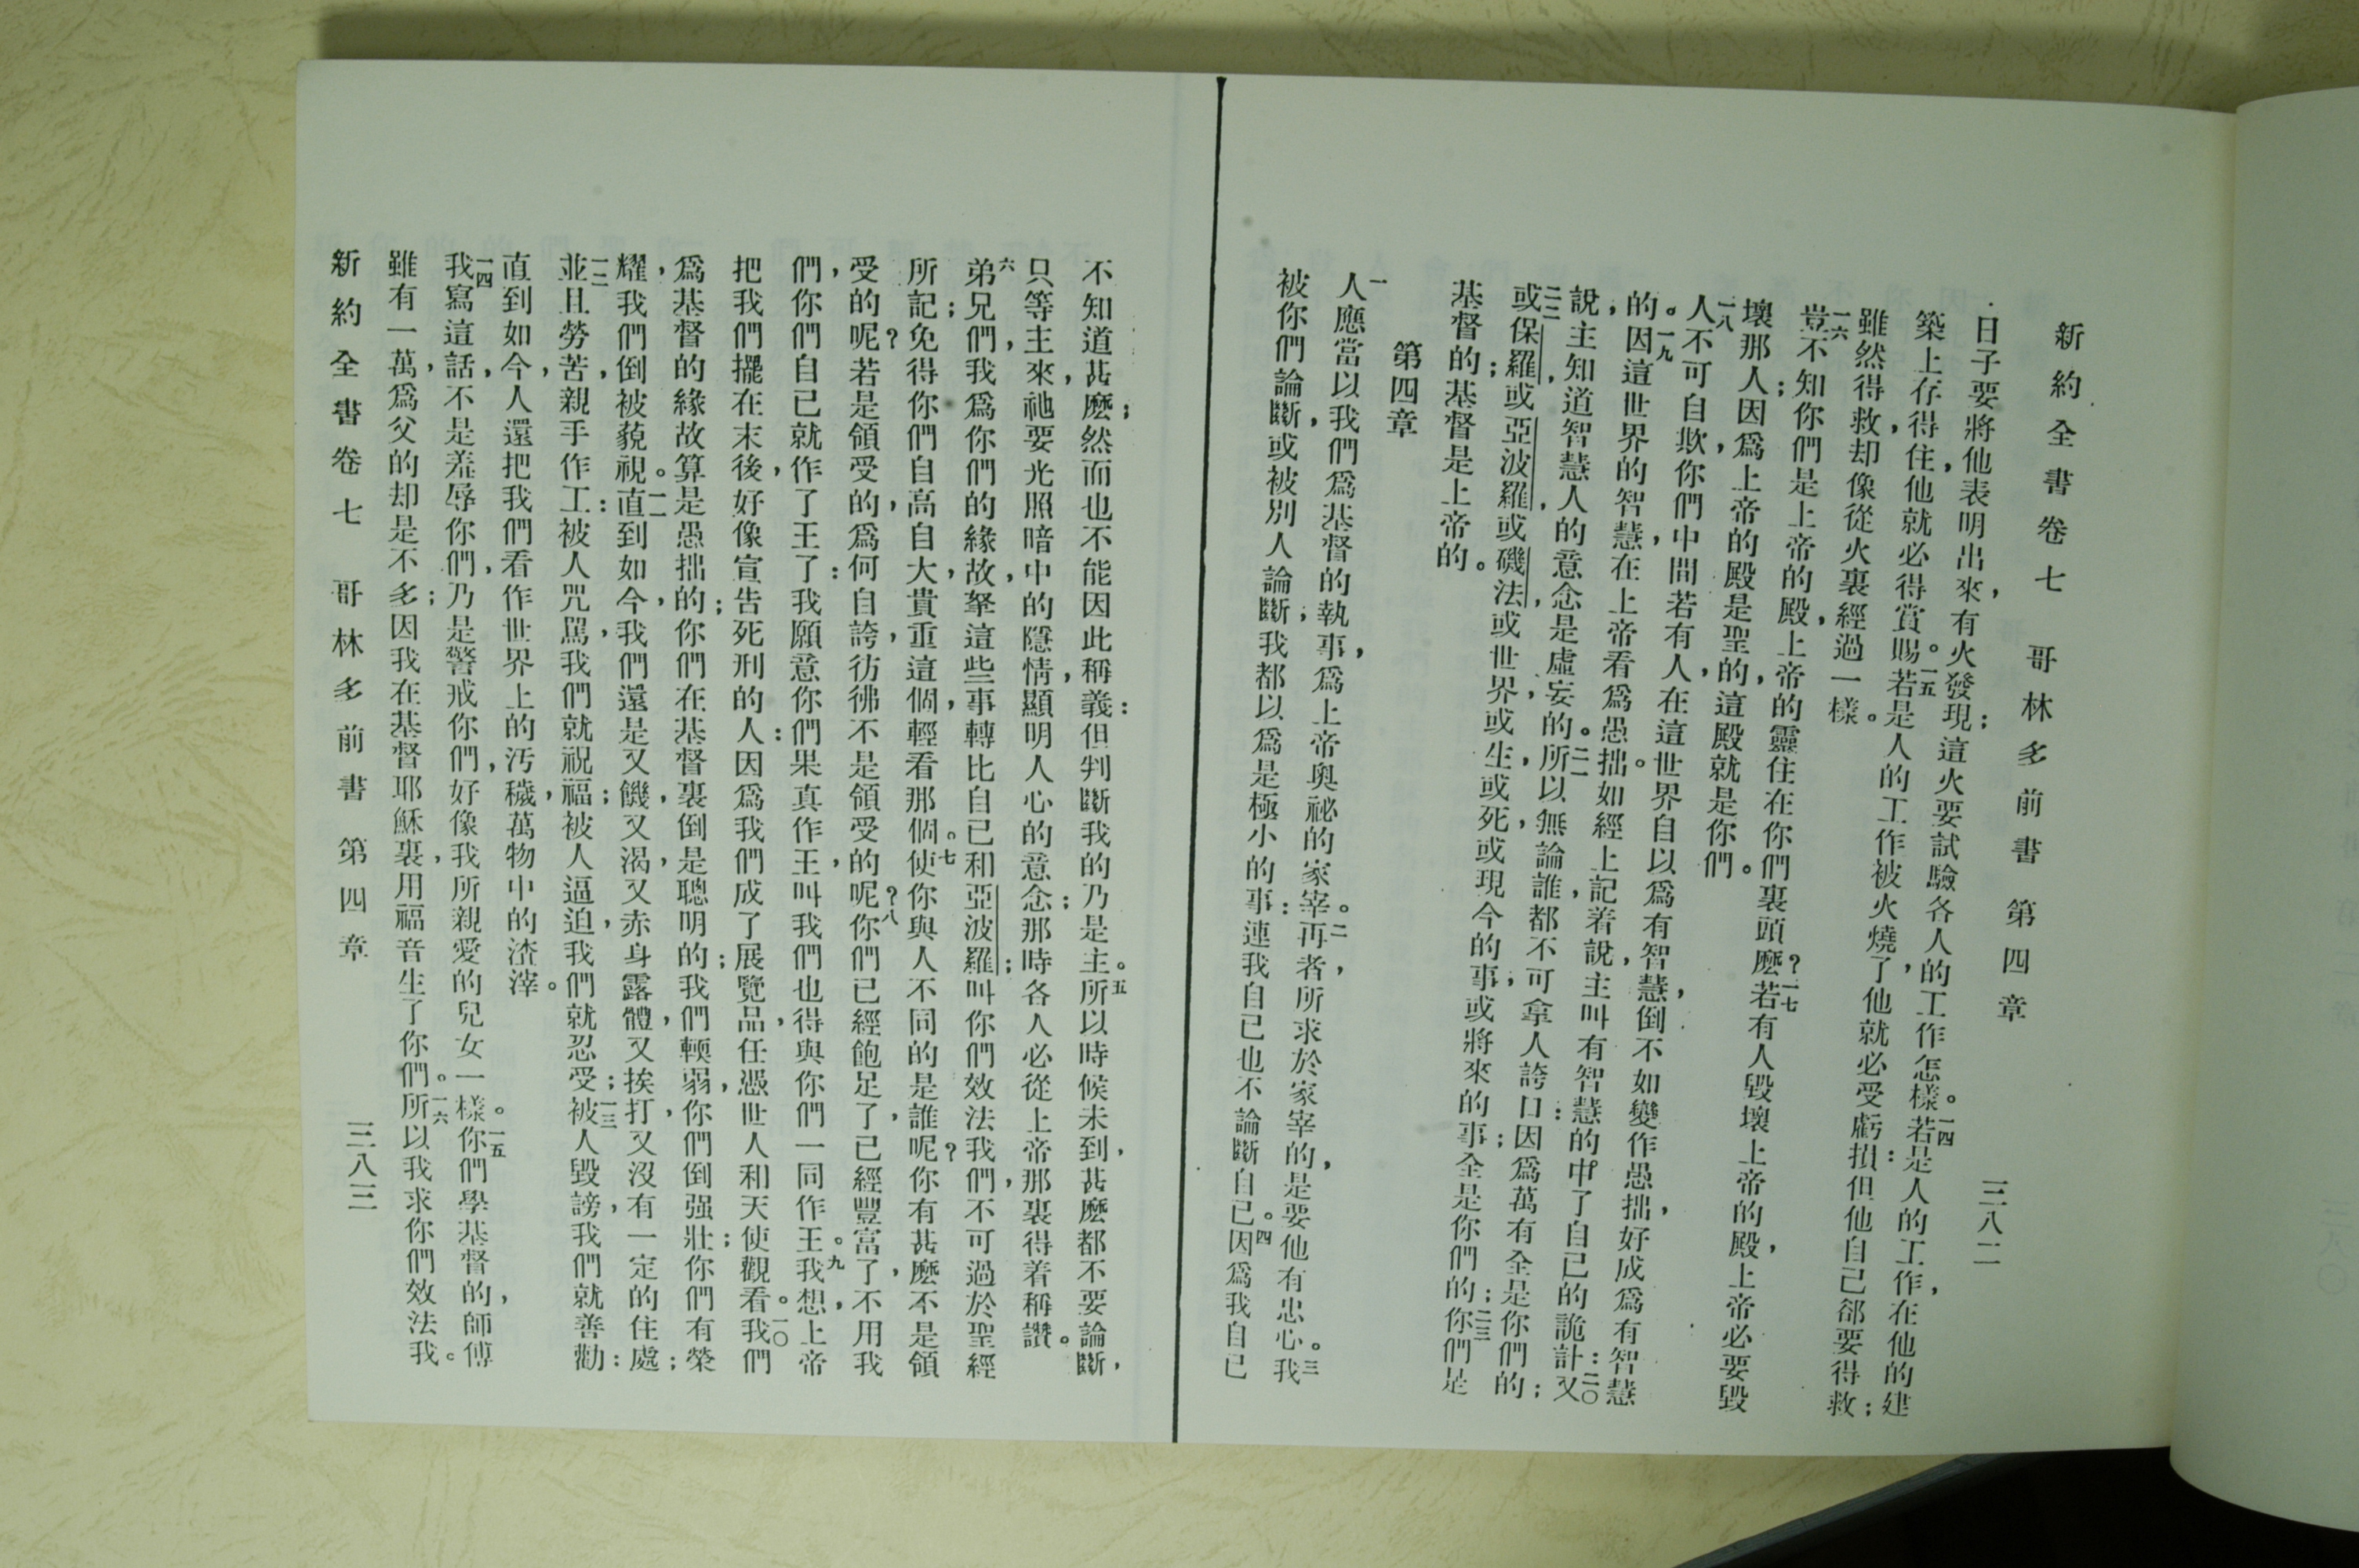 新約全書卷七 哥林多前書 第四章 三八二
日子要將他表明出來，有火發現；這火要試驗各人的工作怎樣。一四若是人的工作，在他的建
築上存得住，他就必得賞賜。一五若是人的工作被火燒了，他就必受虧損：但他自己郤要得救；
雖然得救，却像從火裏經過一樣。
一六豈不知你們是上帝的殿，上帝的靈住在你們裏頭麽？一七若有人毀壞上帝的殿，上帝必要毀
壞那人；因爲上帝的殿是聖的，這殿就是你們。
一八人不可自欺，你們中間若有人，在這世界自以爲有智慧，倒不如變作愚拙，好成爲有智慧
的。一九因這世界的智慧，在上帝看爲愚拙。如經上記着說，主叫有智慧的，中了自己的詭計：二〇又
說，主知道智慧人的意念是虛妄的。二一所以無論誰，都不可拿人誇口：因爲萬有全是你們的；
二二或保羅，或亞波羅，或磯法，或世界，或生，或死，或現今的事，或將來的事；全是你們的；二三你們是
基督的；基督是上帝的。
第四章
一人應當以我們爲基督的執事，爲上帝奧祕的家宰。二再者，所求於家宰的，是要他有忠心。三我
被你們論斷，或被別人論斷；我都以爲是極小的事：連我自己也不論斷自己。四因爲我自己
不知道甚麽；然而也不能因此稱義：但判斷我的乃是主。五所以時候未到，甚麽都不要論斷，
只等主來，祂要光照暗中的隱情，顯明人心的意念；那時各人必從上帝那裏得着稱讚。
六弟兄們，我爲你們的緣故，拏這些事轉比自己和亞波羅；叫你們效法我們，不可過於聖經
所記；免得你們自高自大，貴重這個，輕看那個。七使你與人不同的是誰呢？你有甚麽不是領
受的呢？若是領受的，爲何自誇，彷彿不是領受的呢？八你們已經飽足了，已經豐富了，不用我
們，你們自己就作了王了：我願意你們果真作王，叫我們也得與你們一同作王。九我想，上帝
把我們擺在末後，好像宣告死刑的人：因爲我們成了展覽品，任憑世人和天使觀看。一〇我們
爲基督的緣故算是愚拙的；你們在基督裏倒是聰明的；我們輭弱，你們倒强壯；你們有榮
耀，我們倒被藐視。一一直到如今，我們還是又饑，又渴，又赤身露體，又挨打，又沒有一定的住處；
一二並且勞苦，親手作工：被人咒駡，我們就祝福；被人逼迫，我們就忍受；一三被人毀謗，我們就善勸：
直到如今，人還把我們看作世界上的汚穢，萬物中的渣滓。
一四我寫這話，不是羞辱你們，乃是警戒你們，好像我所親愛的兒女一樣。一五你們學基督的，師傅
雖有一萬，爲父的却是不多；因我在基督耶穌裏，用福音生了你們。一六所以我求你們效法我。
新約全書卷七 哥林多前書 第四章 三八三